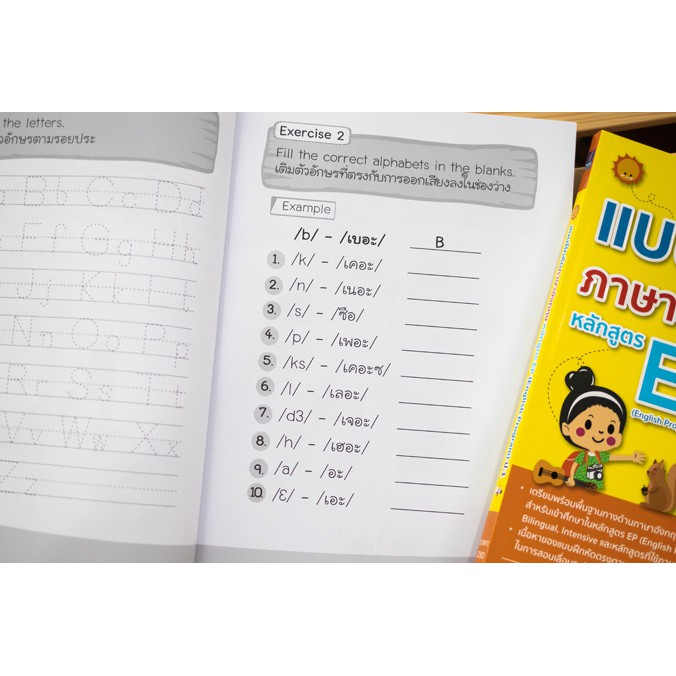 the letters.
อักษรตามรอยประ
Bb Cc Dd
Ff Gg Hh
Jj Kk Ll
Nn Oo Pp
Rr Ss Tt
Vv Ww Xx
Zz
Exercise 2
Fill the correct alphabets in the blanks.
เติมตัวอักษรที่ตรงกับการออกเสียงลงในช่องว่าง
Example
/b/ - /เบอะ/ B
1. /k/ - /เคอะ/
2. /n/ - /เนอะ/
3. /s/ - /ซือ/
4. /p/ - /เพอะ/
5. /ks/ - /เคอะซ/
6. /l/ - /เลอะ/
7. /d3/ - /เจอะ/
8. /h/ - /เฮอะ/
9. /a/ - /อะ/
10. /ɛ/ - /เอะ/
แบบ
ภาษา
หลักสูตร
E
(English Pro
• เตรียมพร้อมพื้นฐานทางด้านภาษาอังกฤ
สำหรับเข้าศึกษาในหลักสูตร EP (English
Bilingual, Intensive และหลักสูตรที่ใช้ภา
• เนื้อหาของแบบฝึกหัดตรงตาม
ในการสอบเลื่อน